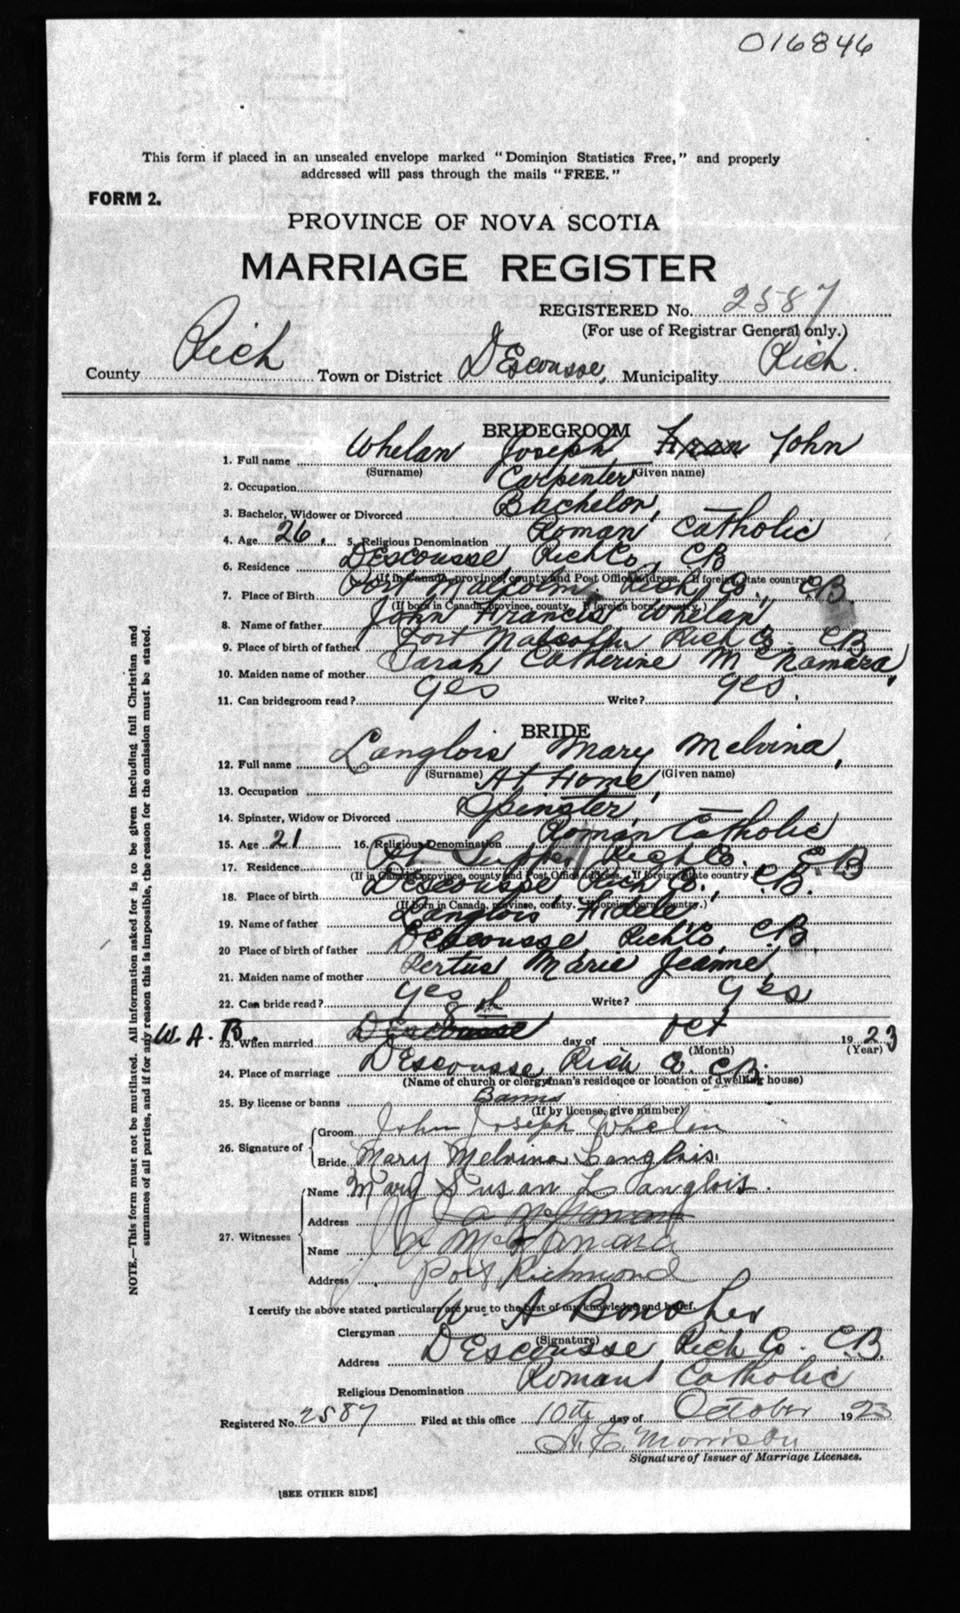 016846
This form if placed in an unsealed envelope marked "Dominion Statistics Free," and properly
addressed will pass through the mails "FREE."
FORM 2.
PROVINCE OF NOVA SCOTIA
MARRIAGE REGISTER
REGISTERED No. 2587
(For use of Registrar General only.)
County Rich Town or District DEscousse, Municipality Rich.
BRIDEGROOM
1. Full name Whelan Joseph John
(Surname) (Given name)
2. Occupation Carpenter
3. Bachelor, Widower or Divorced Bachelor,
4. Age 26. 5. Religious Denomination Roman Catholic
6. Residence DEscousse Rich Co, CB
(If in Canada, province, county and Post Office address. If foreign, state country)
7. Place of Birth Port Malcolm, Rich Co., CB
(If born in Canada, province, county. If foreign born, country.)
8. Name of father John Francis Whelan
9. Place of birth of father Port Malcolm Rich Co. CB
10. Maiden name of mother Sarah Catherine McNamara,
11. Can bridegroom read? yes Write? yes.
BRIDE
12. Full name Langlois Mary Melvina,
(Surname) (Given name)
13. Occupation At Home,
14. Spinster, Widow or Divorced Spinster,
15. Age 21 16. Religious Denomination Roman Catholic
17. Residence Rich Co. C.B
(If in Canada, province, county and Post Office Address. If foreign state country.)
18. Place of birth DEscousse, Rich Co., C.B.
(If born in Canada, province, county. If foreign born, country.)
19. Name of father Langlois, Fidele,
20 Place of birth of father DEscousse, Rich Co, C.B.
21. Maiden name of mother Marie Jeanne,
22. Can bride read? yes Write? yes
W. A. B. 8th
23. When married DEscousse day of Oct 1923
(Month) (Year)
24. Place of marriage DEscousse Rich Co. CB.
(Name of church or clergyman's residence or location of dwelling house)
25. By license or banns Banns
(If by license, give number)
26. Signature of Groom John Joseph Whelan
Bride Mary Melvina Langlois.
27. Witnesses Name Mary Susan Langlois.
Address
Name McNamara
Address Port Richmond
I certify the above stated particulars are true to the best of my knowledge and belief.
Clergyman W. A Bonaher
(Signature)
Address DEscousse Rich Co. C.B.
Religious Denomination Roman Catholic
Registered No. 2587 Filed at this office 10th day of October 1923
Morrison
Signature of Issuer of Marriage Licenses.
[SEE OTHER SIDE]
NOTE.—This form must not be mutilated. All information asked for is to be given including full Christian and
surnames of all parties, and if for any reason this is impossible, the reason for the omission must be stated.